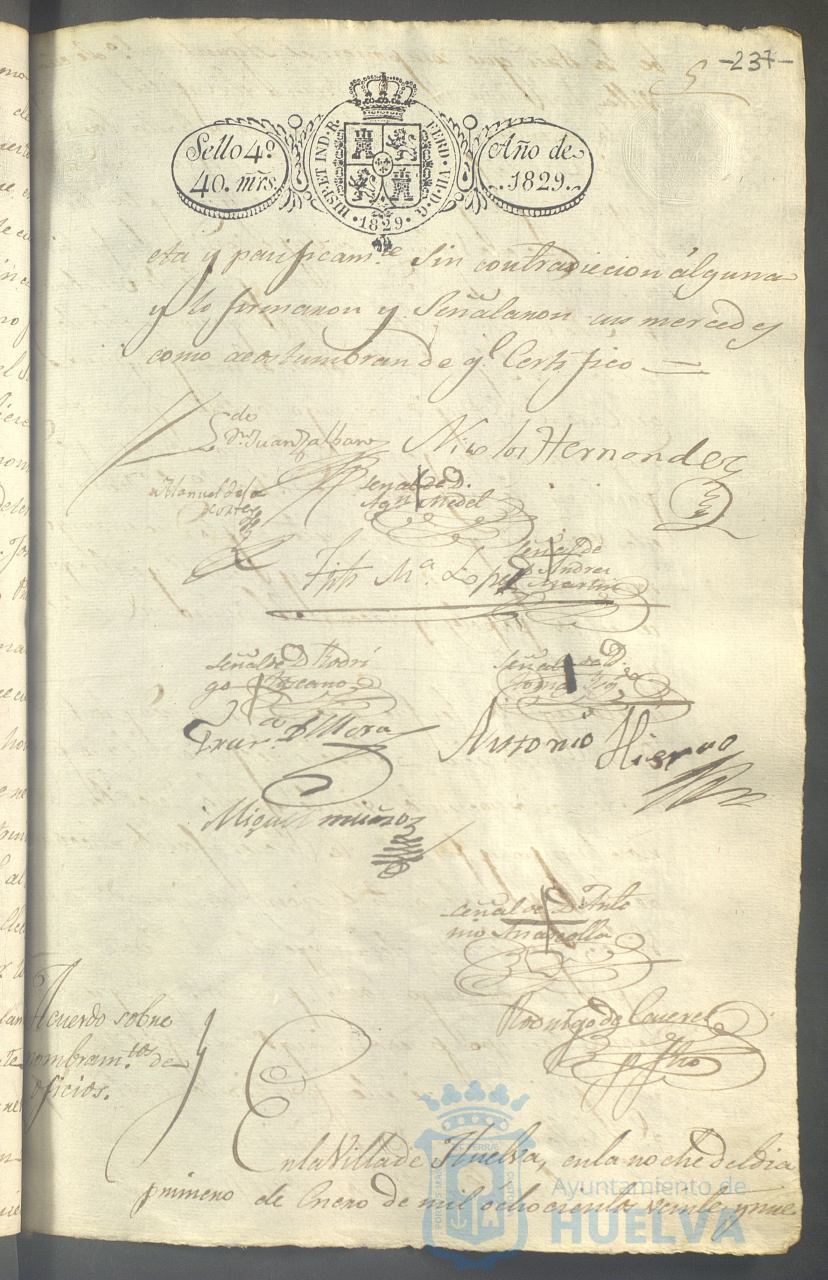 -237-
5
Sello 4º
40. mrs.
HISP. ET IND. R. FERD. VII. D. G. 1829
Año de
1829.
eta y pacificam.te sin contradiccion alguna
y lo firmaron y señalaron sus mercedes
como acostumbran de q.e Certifico
L.do
Dn. Juan
Nicolas Hernandez
Manuel de la
Cortes
señal de D.
Agn.
señal de
D. Andres
Martin
Ma. Lopez
señal de D. Rodri
go
señal de D.
Tomas
Fran.co de Mora
Antonio Hierro
Miguel muñoz
señal de D. Anto
nio
Rodrigo de
Acuerdo sobre
nombram.tos de
oficios.
En la Villa de Huelva, en la noche del dia
primero de Enero de mil ochocientos veinte y nue
Ayuntamiento de
HUELVA